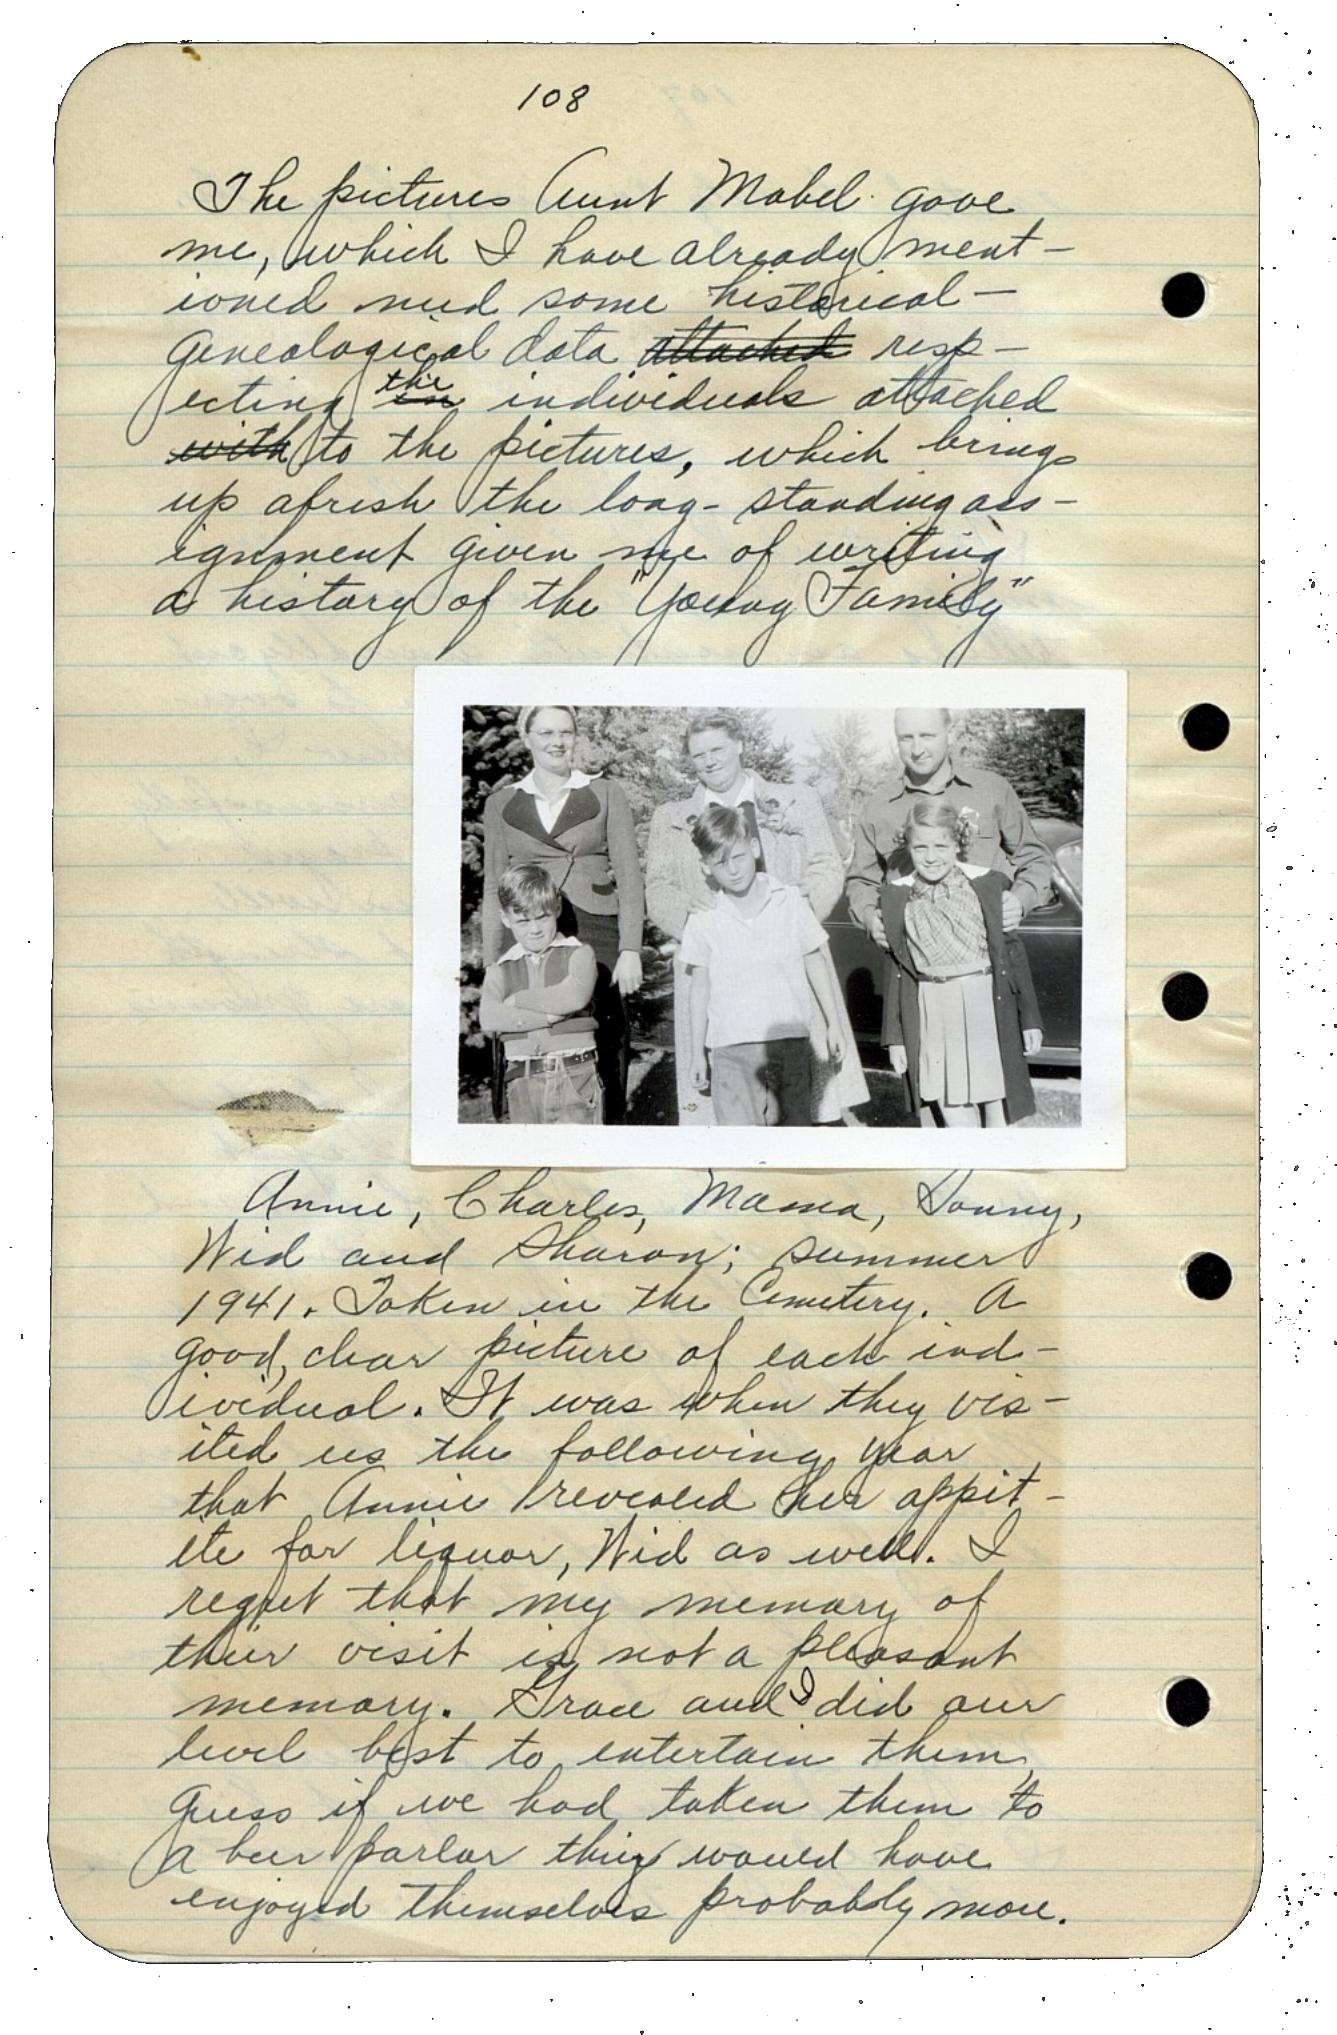 108
The pictures Aunt Mabel gave
me, which I have already ment-
ioned need some historical-
genealogical data attached resp-
ecting the individuals attached
with to the pictures, which brings
up afresh the long-standing ass-
ignment given me of writing
a history of the "Young Family"
Annie, Charles, Mama, Sonny,
Wid and Sharon; summer
1941. Taken in the Cemetery. A
good, clear picture of each ind-
ividual. It was when they vis-
ited us the following year
that Annie revealed her appit-
ite for liquor, Wid as well. I
regret that my memory of
their visit is not a pleasant
memory. Grace and I did our
level best to entertain them,
guess if we had taken them to
a beer parlor they would have
enjoyed themselves probably more.